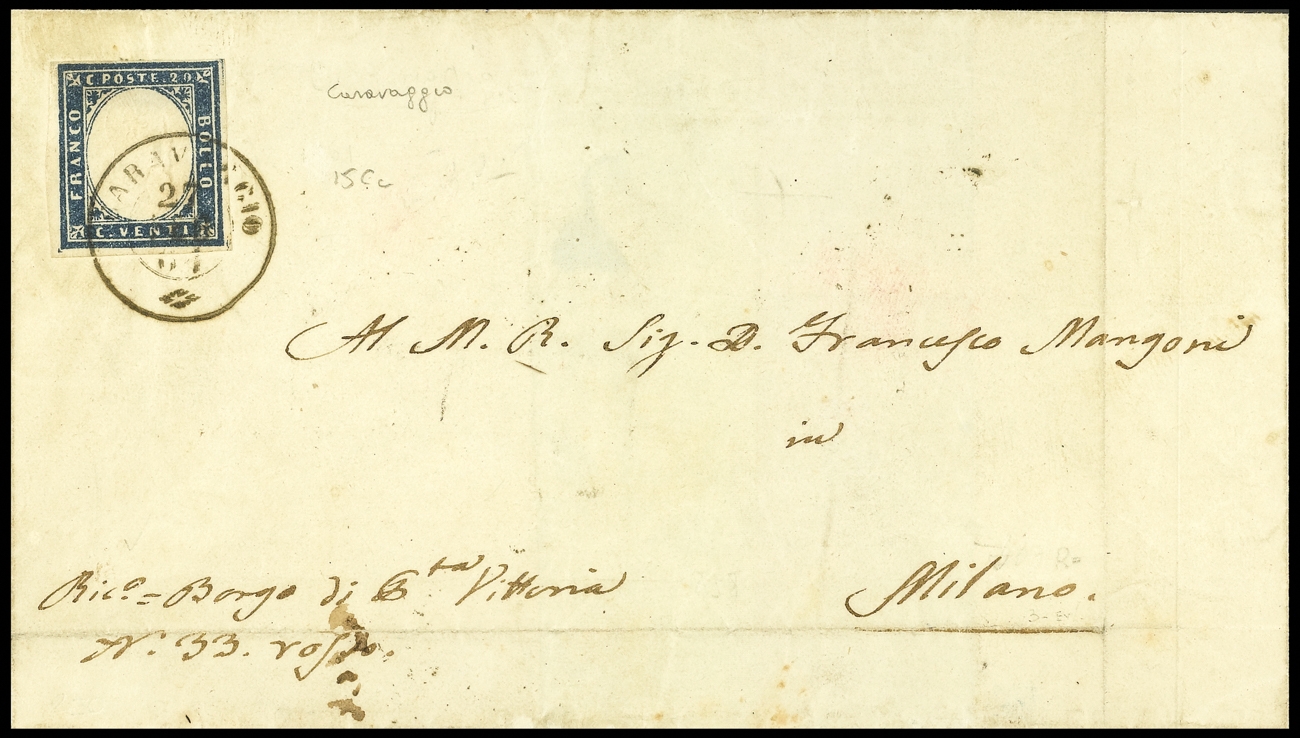 C. POSTE. 20.
FRANCO
BOLLO
C. VENTI
Caravaggio
15Cc
Al M. R. Sig. D. Francesco Mangoni
in
Milano.
Ric.o = Borgo di Sta Vittoria
N.o 33. rosso.